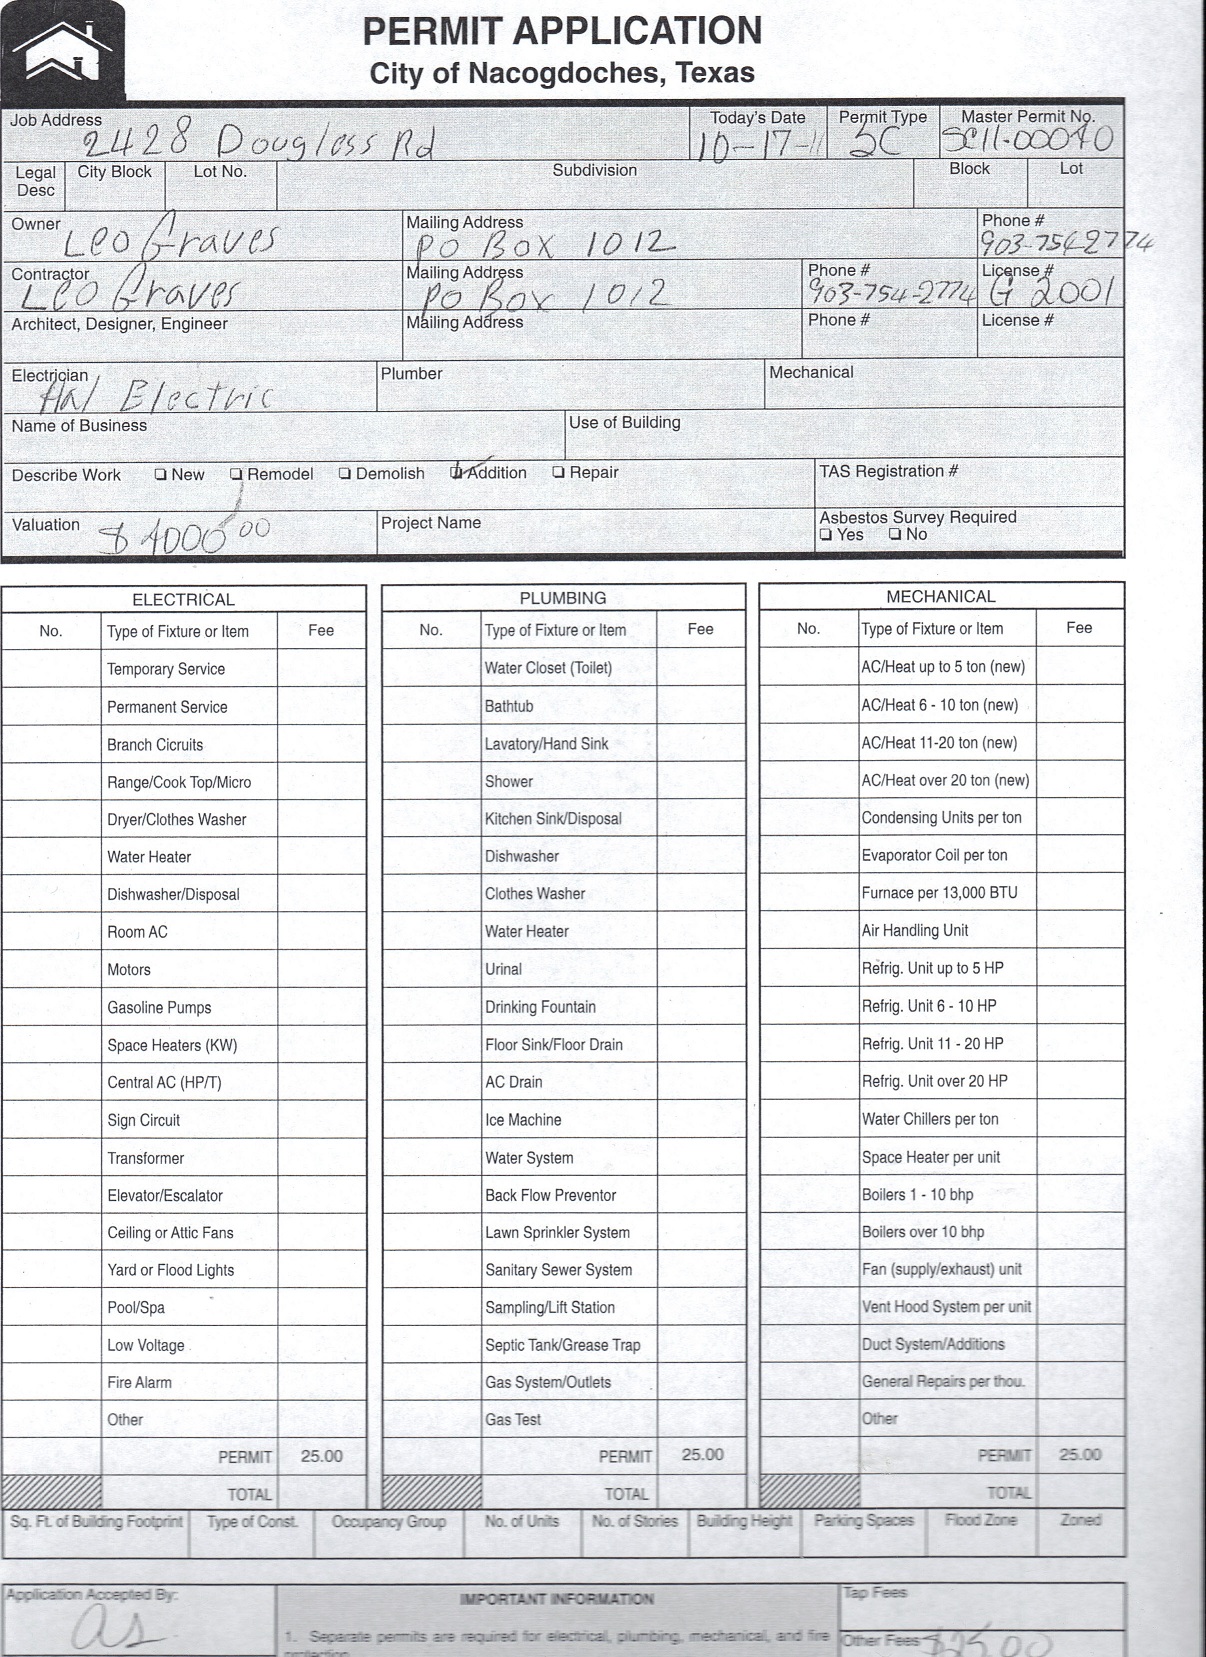 PERMIT APPLICATION
City of Nacogdoches, Texas
Job Address 2428 Dougless Rd Today's Date 10-17-11 Permit Type SC Master Permit No. SC11-00070
Legal Desc City Block Lot No. Subdivision Block Lot
Owner Leo Graves Mailing Address PO Box 1012 Phone # 903-754-2774
Contractor Leo Graves Mailing Address PO Box 1012 Phone # 903-754-2774 License # G 2001
Architect, Designer, Engineer Mailing Address Phone # License #
Electrician Hal Electric Plumber Mechanical
Name of Business Use of Building
Describe Work ❏ New ❏ Remodel ❏ Demolish ❏ Addition ❏ Repair TAS Registration #
Valuation $ 4000.00 Project Name Asbestos Survey Required
❏ Yes ❏ No
ELECTRICAL PLUMBING MECHANICAL
No. Type of Fixture or Item Fee No. Type of Fixture or Item Fee No. Type of Fixture or Item Fee
Temporary Service Water Closet (Toilet) AC/Heat up to 5 ton (new)
Permanent Service Bathtub AC/Heat 6 - 10 ton (new)
Branch Cicruits Lavatory/Hand Sink AC/Heat 11-20 ton (new)
Range/Cook Top/Micro Shower AC/Heat over 20 ton (new)
Dryer/Clothes Washer Kitchen Sink/Disposal Condensing Units per ton
Water Heater Dishwasher Evaporator Coil per ton
Dishwasher/Disposal Clothes Washer Furnace per 13,000 BTU
Room AC Water Heater Air Handling Unit
Motors Urinal Refrig. Unit up to 5 HP
Gasoline Pumps Drinking Fountain Refrig. Unit 6 - 10 HP
Space Heaters (KW) Floor Sink/Floor Drain Refrig. Unit 11 - 20 HP
Central AC (HP/T) AC Drain Refrig. Unit over 20 HP
Sign Circuit Ice Machine Water Chillers per ton
Transformer Water System Space Heater per unit
Elevator/Escalator Back Flow Preventor Boilers 1 - 10 bhp
Ceiling or Attic Fans Lawn Sprinkler System Boilers over 10 bhp
Yard or Flood Lights Sanitary Sewer System Fan (supply/exhaust) unit
Pool/Spa Sampling/Lift Station Vent Hood System per unit
Low Voltage Septic Tank/Grease Trap Duct System/Additions
Fire Alarm Gas System/Outlets General Repairs per thou.
Other Gas Test Other
PERMIT 25.00 PERMIT 25.00 PERMIT 25.00
TOTAL TOTAL TOTAL
Sq. Ft. of Building Footprint Type of Const. Occupancy Group No. of Units No. of Stories Building Height Parking Spaces Flood Zone Zoned
Application Accepted By: as IMPORTANT INFORMATION Tap Fees
1. Separate permits are required for electrical, plumbing, mechanical, and fire Other Fees $25.00
protection.